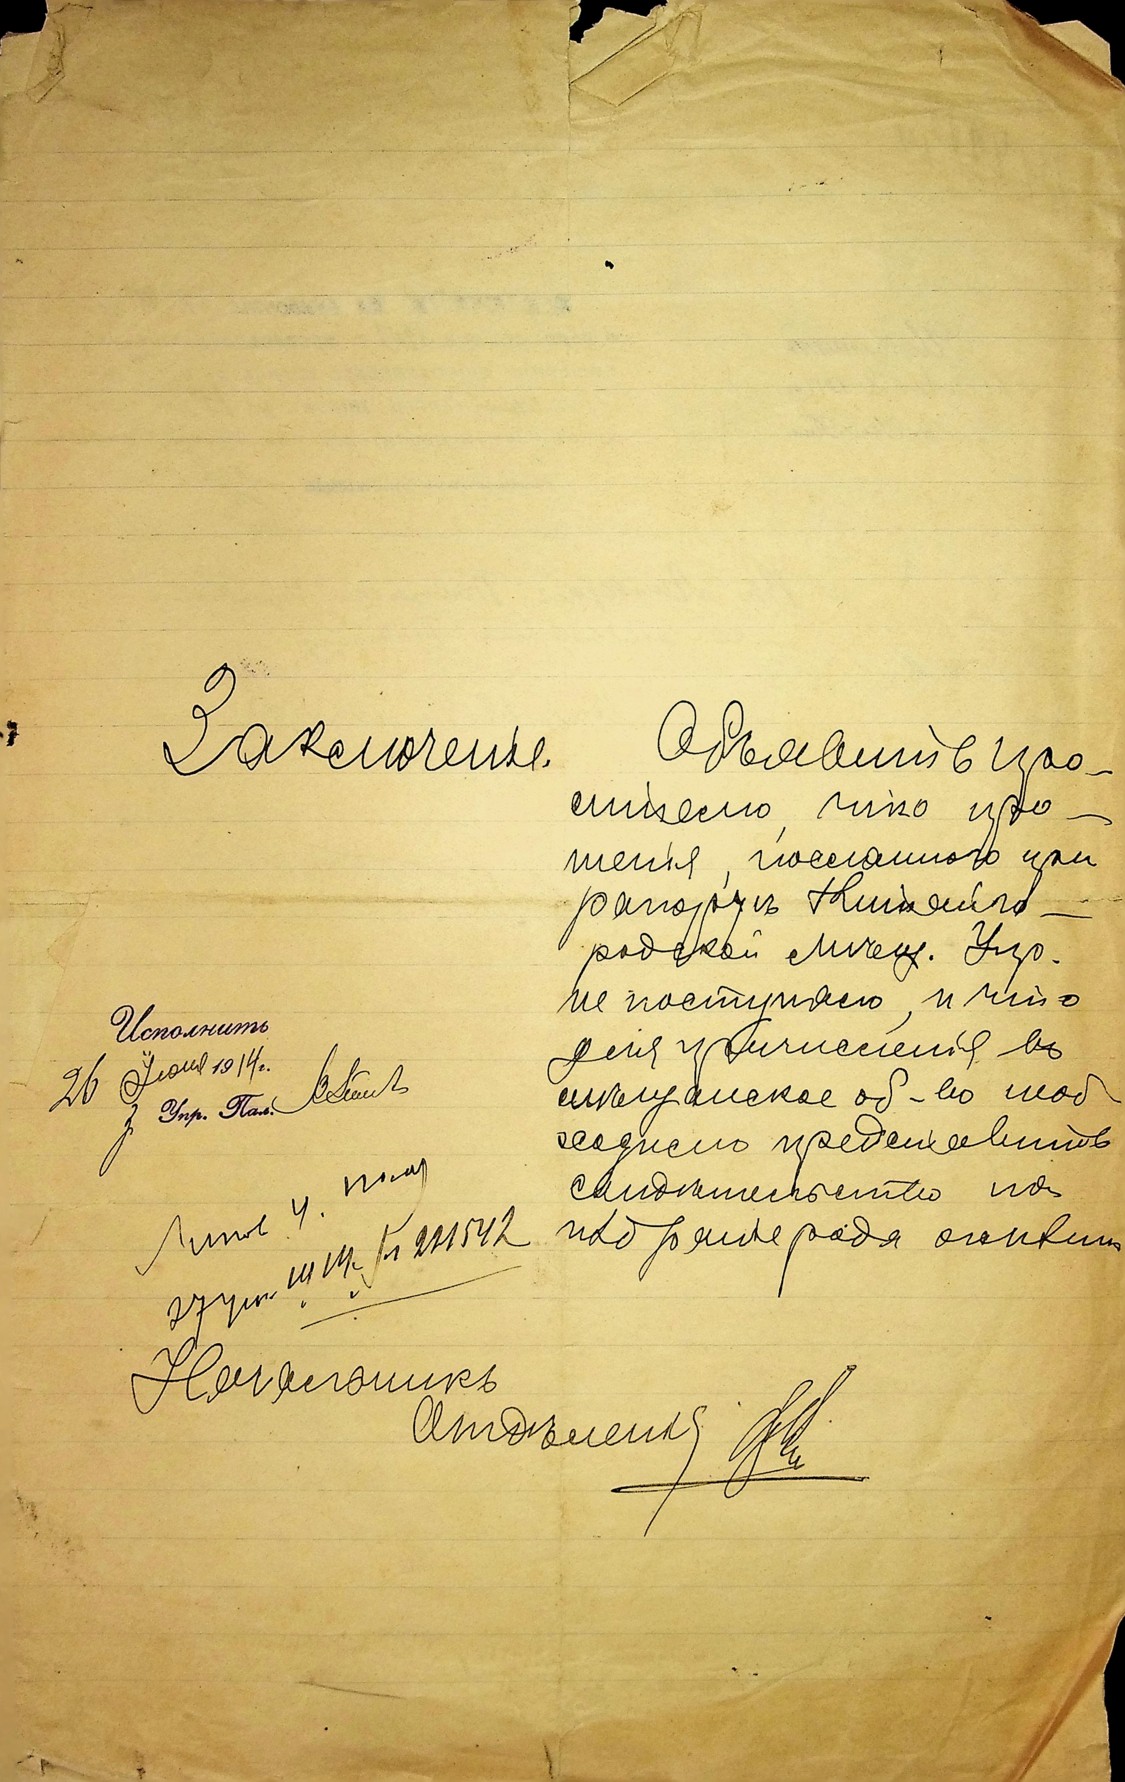 Заключенiе.
Объявить про-
сителю, что про-
шенiя, посланного при
рапортѣ Нижегo-
родской Мѣщ. Упр.
не поступало, и что
для причисленiя въ
мѣщанское об-во необ-
ходимо представить
свидѣтельство на
избранiе рода жизни
Исполнить
26 Iюня 1914 г.
з. Упр. Пал.
27 Iюн. № 211542
Начальникъ
Отдѣленiя